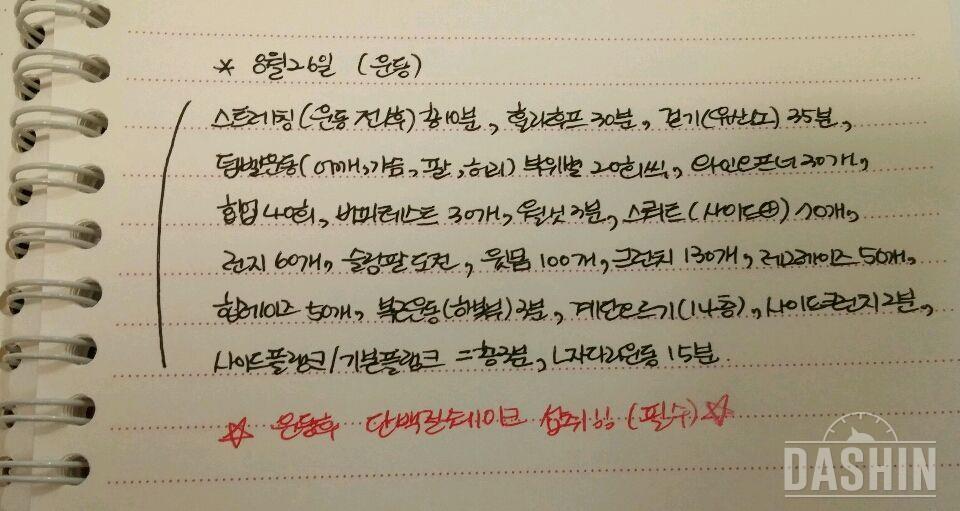 * 8월26일 (운동)
스트레칭(운동 전/후) 총10분, 훌라후프 30분, 걷기(유산소) 35분,
덤벨운동(어깨,가슴,팔,허리) 부위별 20회씩, 와인오프너 30개,
힙업 40회, 버피테스트 30개, 월싯 3분, 스쿼트(사이드⊕) 70개,
런지 60개, 슬랑판 도전, 윗몸 100개, 크런치 130개, 레그레이즈 50개,
힙레이즈 50개, 복근운동(하복부) 3분, 계단오르기(14층), 사이드크런치 2분,
사이드플랭크/기본플랭크 = 총3분, L자다리운동 15분
☆ 운동후 단백질쉐이크 섭취 (필수)☆
DASHIN